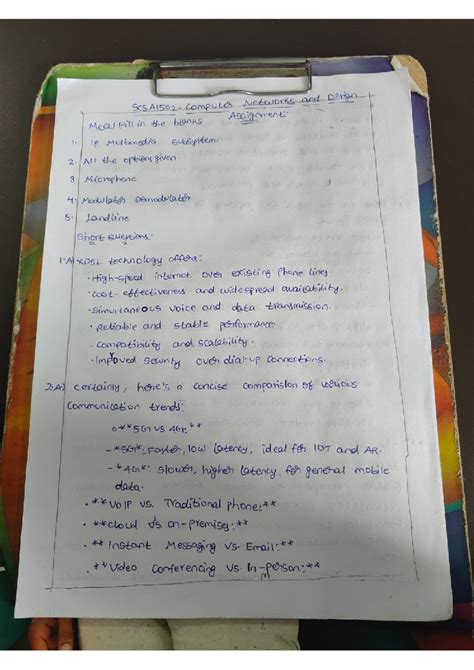 SCSA1502 - Computer Networks and Design
Assignment:
MCQ/ Fill in the blanks
1. IP Multimedia subsystem
2. All the options given
3. Microphone
4. Modulator Demodulator
5. Landline
Short Questions:
1.A) xDSL technology offers:
• High-speed internet over existing Phone lines
• cost-effectiveness and widespread availability.
• Simultaneous voice and data transmission.
• Reliable and stable performance.
• Compatibility and scalability.
• Improved security over dialup connections.
2.A) certainly, here's a concise comparision of various
Communication trends:
o**5G vs 4G:**
- *5G*: Faster, low latency, ideal for IOT and AR.
- *4G*: slower, higher latency, for general mobile
data.
• **VOIP vs. Traditional phone:**
• **cloud vs on-premises:**
• ** Instant Messaging vs. Email:**
• **Video Conferencing vs. In-person:**